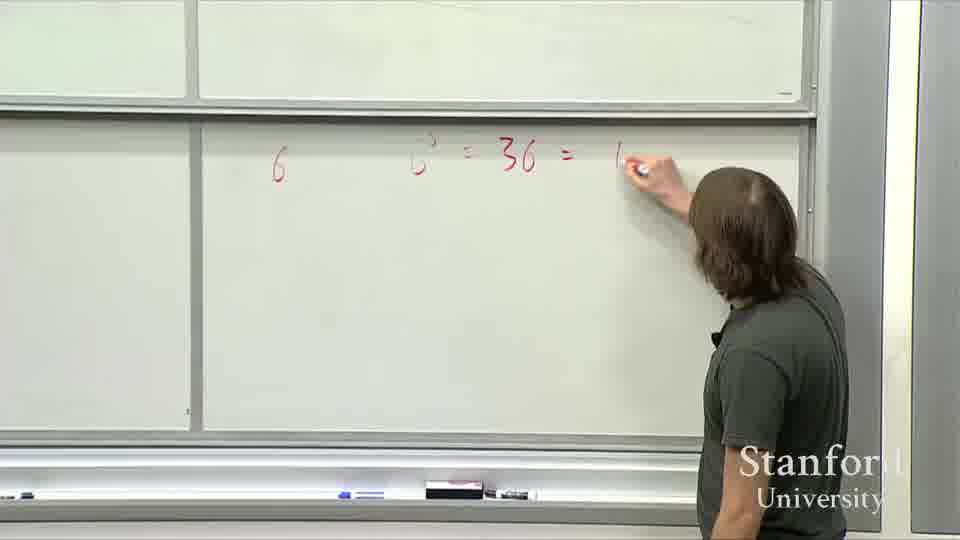 6 6² = 36 =
Stanford
University